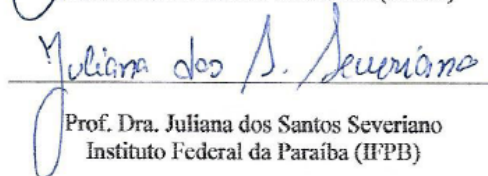 Juliana dos S. Severiano
Prof. Dra. Juliana dos Santos Severiano
Instituto Federal da Paraíba (IFPB)